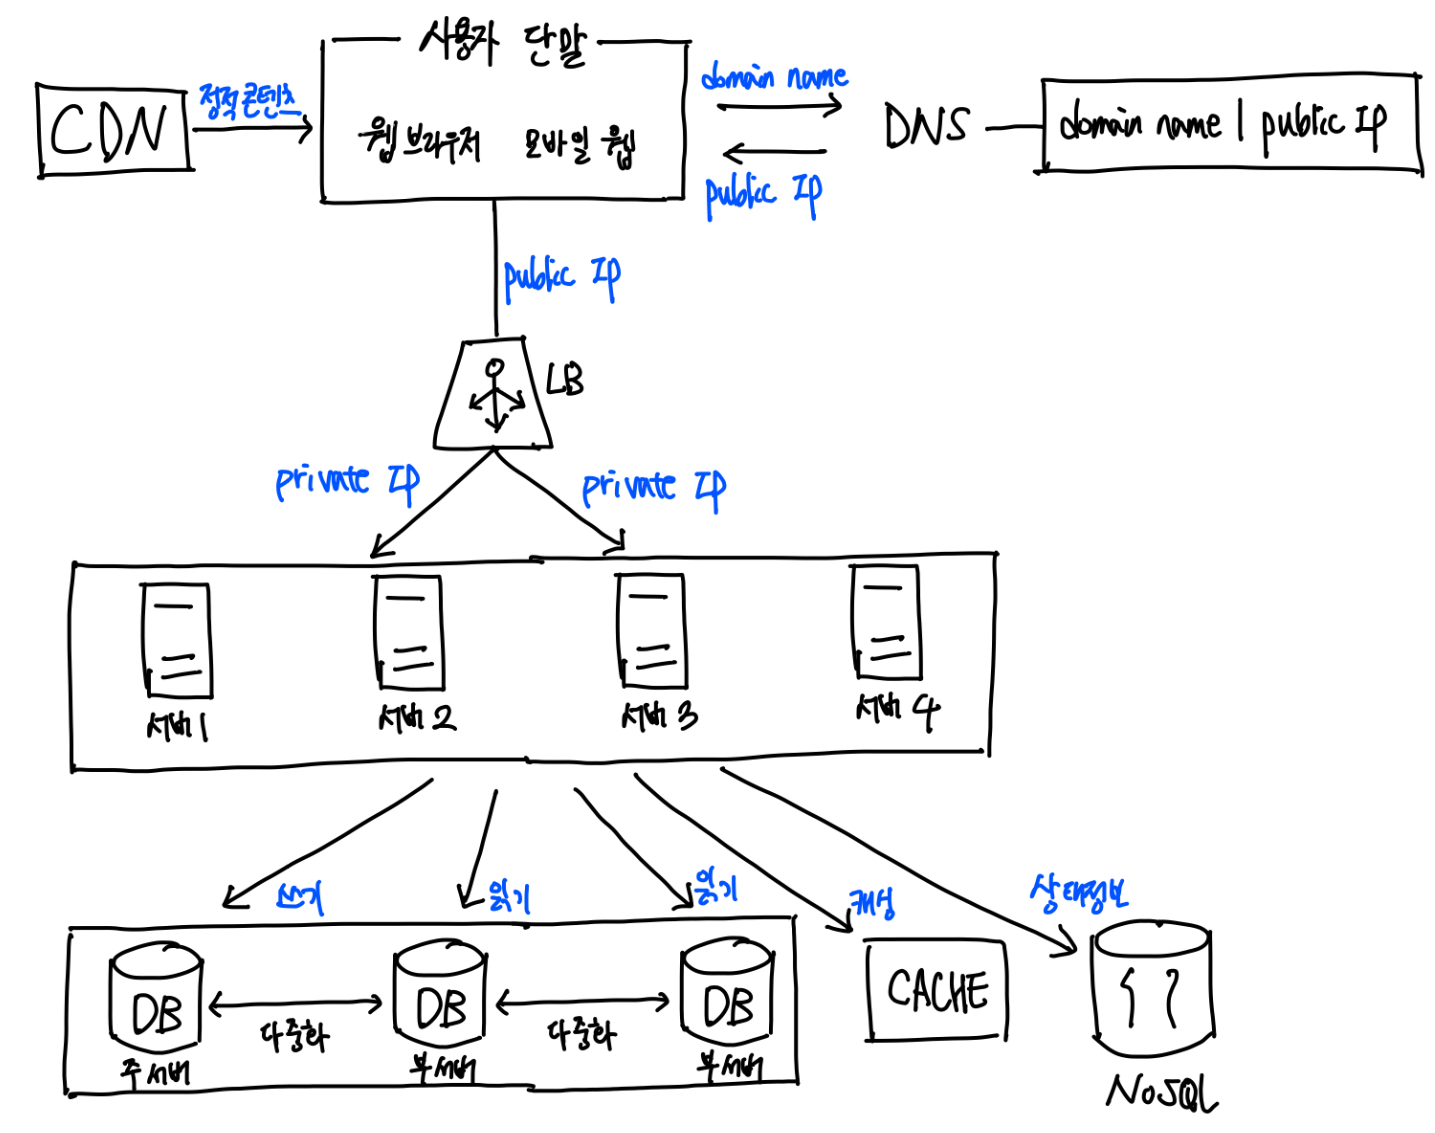 사용자 단말
CDN
정적콘텐츠
웹브라우저 모바일 웹
domain name
public IP
DNS
domain name | public IP
public IP
LB
private IP
private IP
서버1
서버2
서버3
서버4
쓰기
읽기
읽기
캐싱
상태정보
DB
다중화
DB
다중화
DB
주서버
부서버
부서버
CACHE
NoSQL